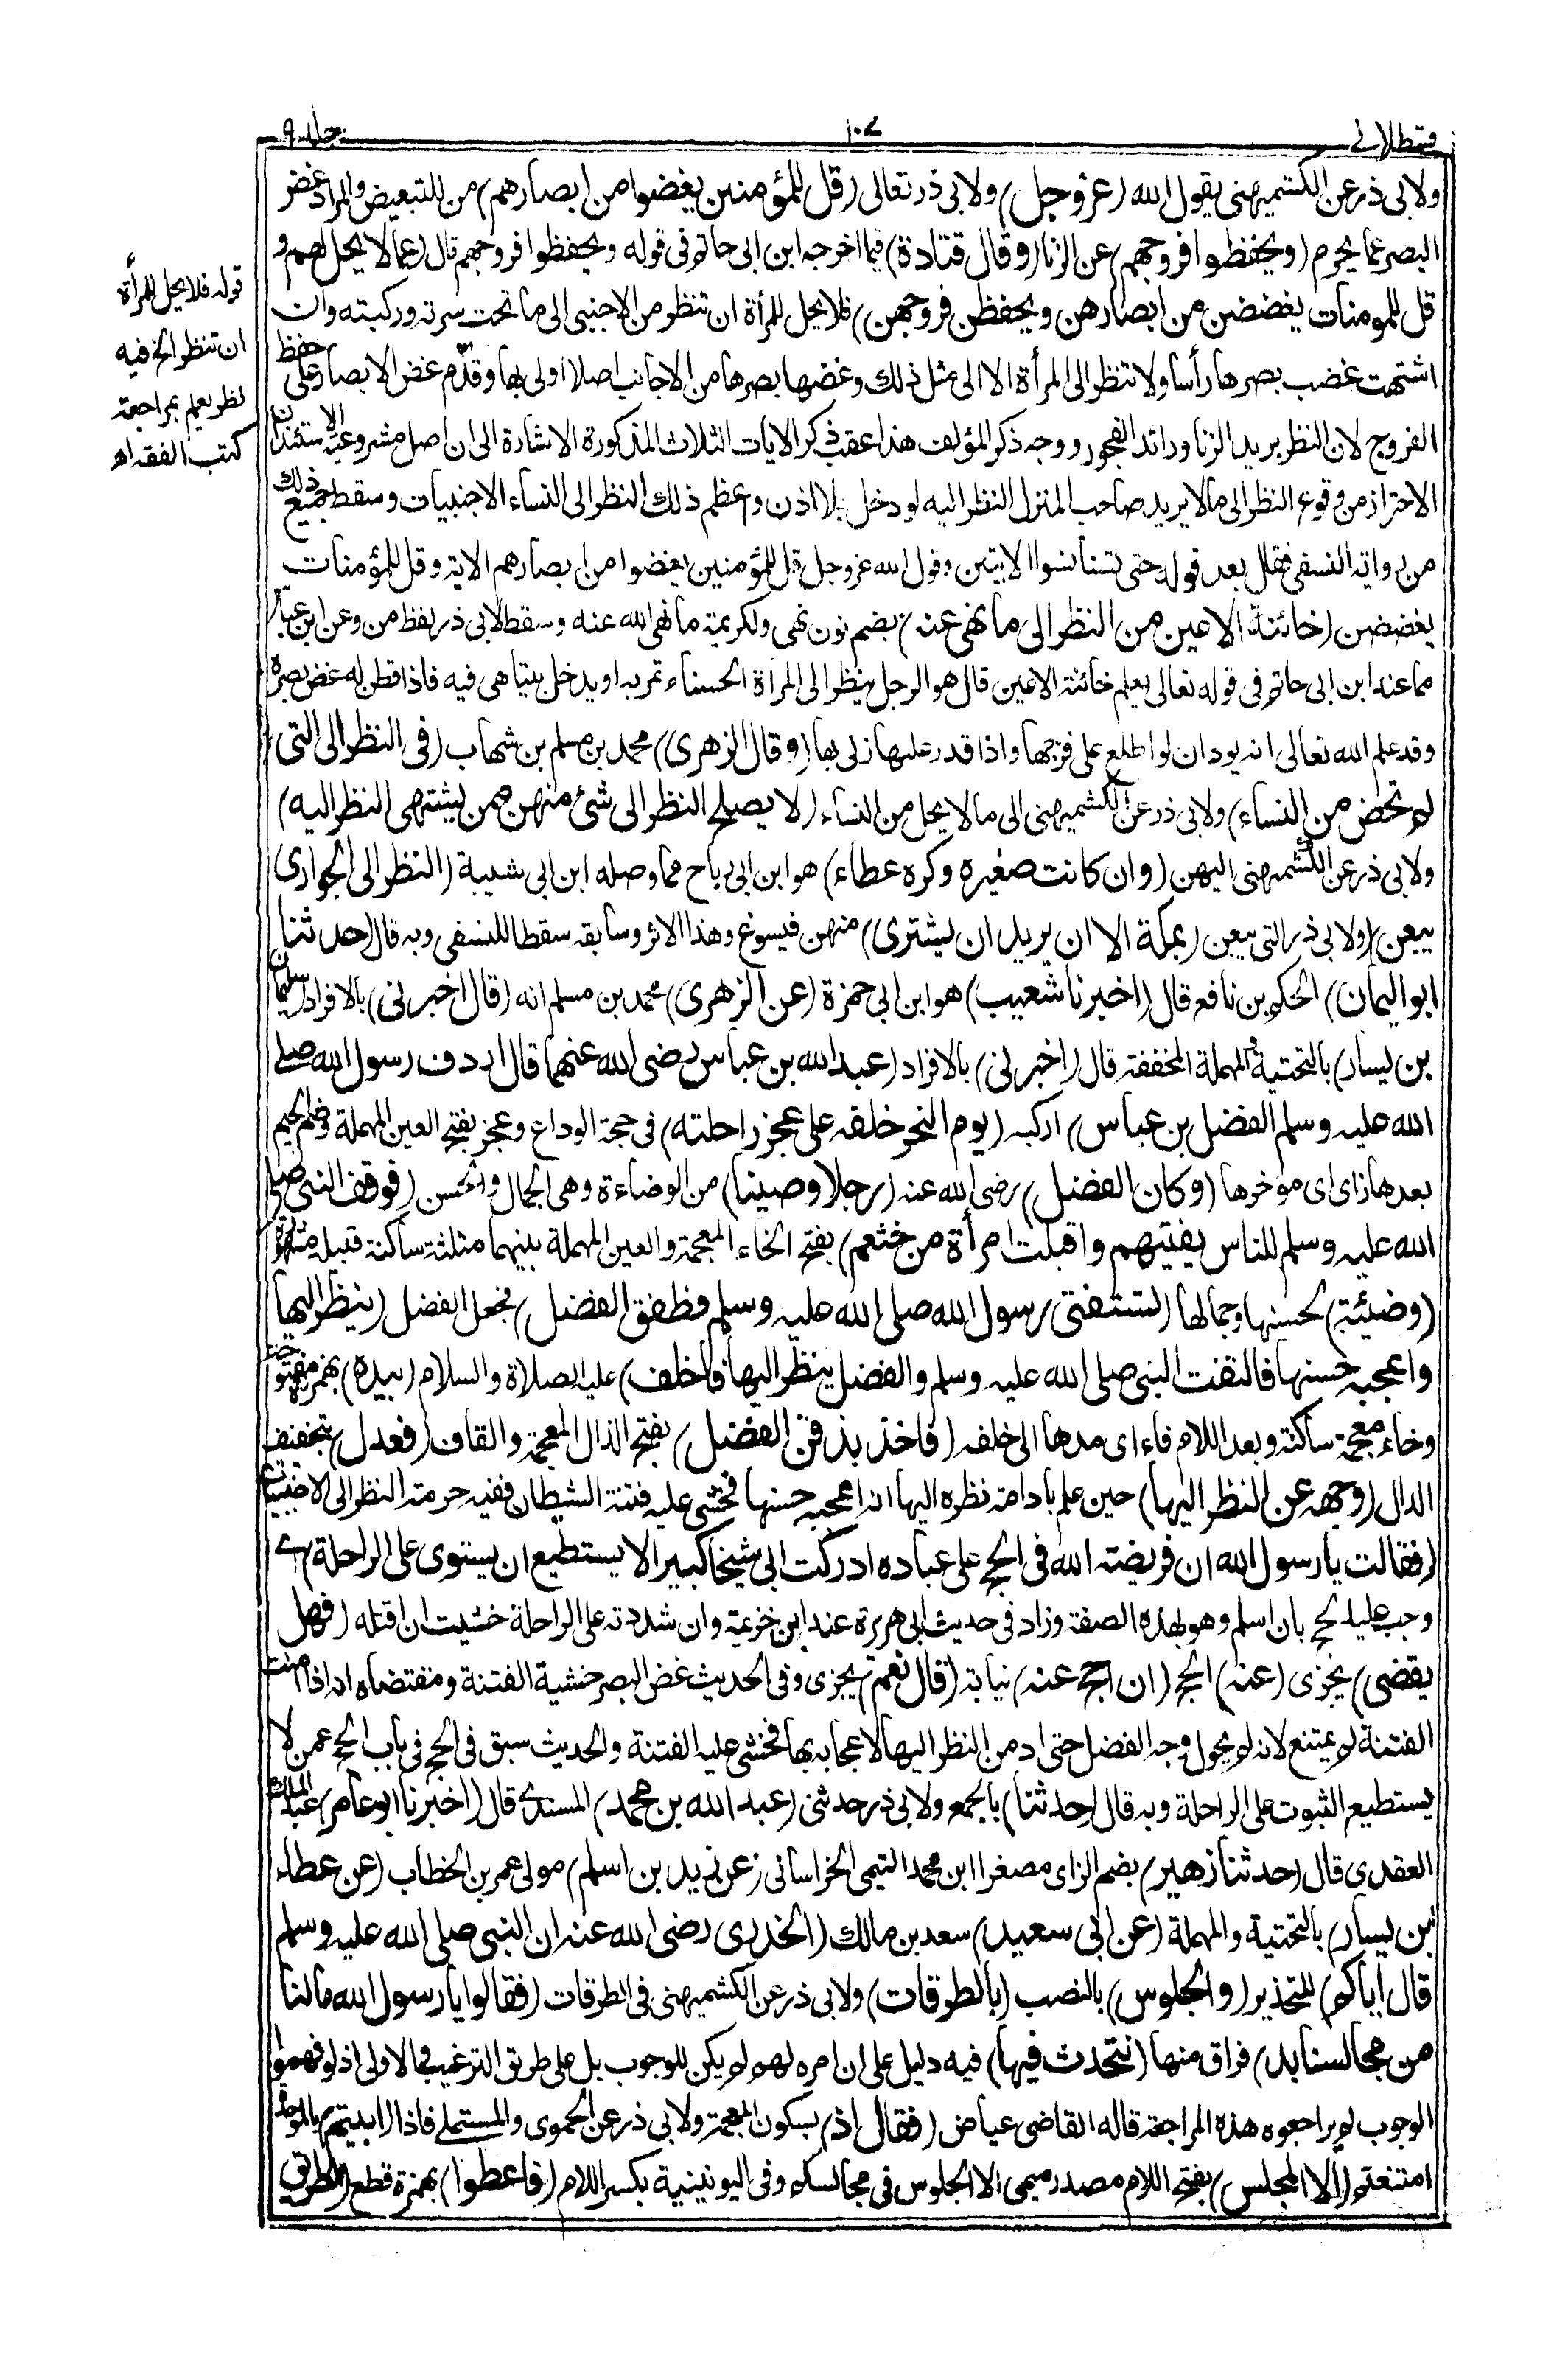 قسطلانی
١٠٧
جلد ٩
ولابی ذر عن الکشمیهنی یقول الله (عز وجل) ولابی ذر تعالی (قل للمؤمنین یغضوا من ابصارهم) من للتبعیض والمراد غض
البصر عما یحرم (ویحفظوا فروجهم) عن الزنا (وقال قتادة) فیما اخرجه ابن ابی حاتم فی قوله ویحفظوا فروجهم قال (عما لا یحل لهم و
قل للمومنات یغضضن من ابصارهن ویحفظن فروجهن) فلا یحل للمرأة ان تنظر من الاجنبی الی ما تحت سرته ورکبته وان
اشتهت غضت بصرها رأسا ولا تنظر الی المرأة الا الی مثل ذلك وغضها بصرها من الاجانب اصلا اولی بها وقدّم غض الابصار علی حفظ
الفروج لان النظر برید الزنا ورائد الفجور ووجه ذکر المؤلف هذا عقب ذکر الایات الثلاث المذکورة الاشارة الی ان اصل مشروعیة الاستئذان
الاحتراز من وقوع النظر الی ما لا یرید صاحب المنزل النظر الیه لو دخل بلا اذن واعظم ذلك النظر الی النساء الاجنبیات وسقط جمیع ذلك
من روایة النسفی فقال بعد قوله حتی تستأنسوا الایتین وقول الله عز وجل قل للمؤمنین یغضوا من ابصارهم الایة وقل للمؤمنات
یغضضن (خائنة الاعین من النظر الی ما نهی عنه) بضم نون نهی ولکریمة ما نهی الله عنه وسقط لابی ذر لفظ من وعن ابن عباس
مما عند ابن ابی حاتم فی قوله تعالی یعلم خائنة الاعین قال هو الرجل ینظر الی المرأة الحسناء تمر به او یدخل بیتا هی فیه فاذا فطن له غض بصره
وقد علم الله تعالی انه یود ان لو اطلع علی فرجها واذا قدر علیها زنی بها (وقال الزهری) محمد بن مسلم بن شهاب (فی النظر الی التی
لم تحض من النساء) ولابی ذر عن الکشمیهنی الی ما لا یحل من النساء (لا یصلح النظر الی شیء منهن ممن یشتهی النظر الیه)
ولابی ذر عن الکشمیهنی الیهن (وان کانت صغیرة وکره عطاء) هو ابن ابی رباح مما وصله ابن ابی شیبة (النظر الی الجواری
یبعن) ولابی ذر التی یبعن (بمکة الا ان یرید ان یشتری) منهن فیسوغ وهذا الاثر وسابقه سقطا للنسفی وبه قال (حدثنا
ابو الیمان) الحکم بن نافع قال (اخبرنا شعیب) هو ابن ابی حمزة (عن الزهری) محمد بن مسلم انه (قال اخبرنی) بالافراد (سلیمان
بن یسار) بالتحتیة والمهملة المخففة قال (اخبرنی) بالافراد (عبد الله بن عباس رضی الله عنهما قال اردف رسول الله صلی
الله علیه وسلم الفضل بن عباس) ارکبه (یوم النحر خلفه علی عجز راحلته) فی حجة الوداع وعجز بفتح العین المهملة وضم الجیم
بعدها زای ای مؤخرها (وکان الفضل) رضی الله عنه (رجلا وضیئا) من الوضاءة وهی الجمال والحسن (فوقف النبی صلی
الله علیه وسلم للناس یفتیهم واقبلت امرأة من خثعم) بفتح الخاء المعجمة والعین المهملة بینهما مثلثة ساکنة قبیلة مشهورة
(وضیئة) لحسنها وجمالها (تستفتی رسول الله صلی الله علیه وسلم فطفق الفضل) فجعل الفضل (ینظر الیها
واعجبه حسنها فالتفت النبی صلی الله علیه وسلم والفضل ینظر الیها فاخلف) علیه الصلاة والسلام (بیده) بهمزة مفتوحة
وخاء معجمة ساکنة وبعد اللام فاء ای مدها الی خلفه (فاخذ بذقن الفضل) بفتح الذال المعجمة والقاف (فعدل) بتخفیف
الدال (وجهه عن النظر الیها) حین علم بادامة نظره الیها انه اعجبه حسنها فخشی علیه فتنة الشیطان ففیه حرمة النظر الی الاجنبیات
(فقالت یا رسول الله ان فریضة الله فی الحج علی عباده ادرکت ابی شیخا کبیرا لا یستطیع ان یستوی علی الراحلة) ای
وجب علیه الحج بان اسلم وهو بهذه الصفة وزاد فی حدیث ابی هریرة عند ابن خزیمة وان شددته علی الراحلة خشیت ان اقتله (فهل
یقضی) یجزی (عنه) الحج (ان احج عنه) نیابة (قال نعم) یجزی وفی الحدیث غض البصر خشیة الفتنة ومقتضاه انه اذا امنت
الفتنة لم یمتنع لانه لم یحول وجه الفضل حتی ادمن النظر الیها لاعجابه بها فخشی علیه الفتنة والحدیث سبق فی الحج فی باب الحج عمن لا
یستطیع الثبوت علی الراحلة وبه قال (حدثنا) بالجمع ولابی ذر حدثنی (عبد الله بن محمد) المسندی قال (اخبرنا ابو عامر) عبد الملك
العقدی قال (حدثنا زهیر) بضم الزای مصغرا ابن محمد التیمی الخراسانی (عن زید بن اسلم) مولی عمر بن الخطاب (عن عطاء
بن یسار) بالتحتیة والمهملة (عن ابی سعید) سعد بن مالك (الخدری رضی الله عنه ان النبی صلی الله علیه وسلم
قال ایاکم) للتحذیر (والجلوس) بالنصب (بالطرقات) ولابی ذر عن الکشمیهنی فی الطرقات (فقالوا یا رسول الله ما لنا
من مجالسنا بد) فراق منها (نتحدث فیها) فیه دلیل علی ان امره لهم لم یکن للوجوب بل علی طریق الترغیب والاولی اذ لو فهموا
الوجوب لم یراجعوه هذه المراجعة قاله القاضی عیاض (فقال اذ) بسکون المعجمة ولابی ذر عن الحموی والمستملی فاذا (ابیتم) بالموحدة
امتنعتم (الا المجلس) بفتح اللام مصدر میمی الا الجلوس فی مجالسکم وفی الیونینیة بکسر اللام (فاعطوا) بهمزة قطع (الطریق
قوله فلا یحل للمرأة
ان تنظر الخ فیه
نظر یعلم بمراجعة
کتب الفقه اه